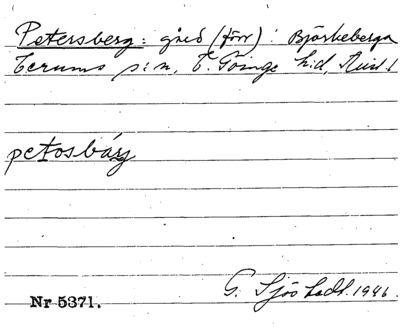 Petersberg: gård (förr) i Björkeberga
Verums s:n, V. Göinge h:d, Krist. l
petosbárg
Nr 5371. G. Sjöstedt. 1946.